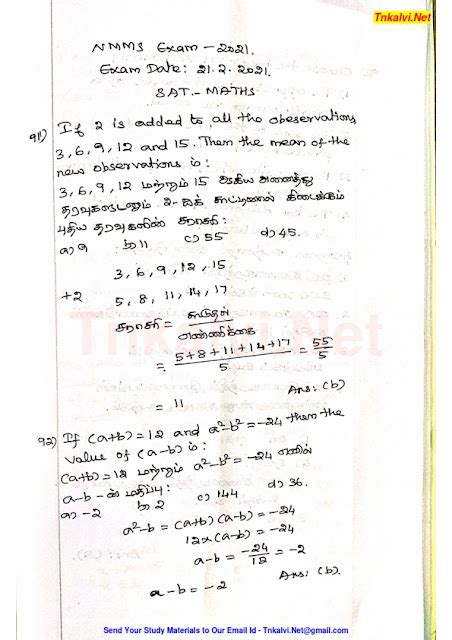 Tnkalvi.Net
NMMS Exam - 2021.
Exam Date: 21.2.2021.
SAT.- MATHS
91) If 2 is added to all the obeservations
3, 6, 9, 12 and 15. Then the mean of the
new observations is:
3, 6, 9, 12 மற்றும் 15 ஆகிய அனைத்து
தரவுகளுடனும் 2-ஐக் கூட்டினால் கிடைக்கும்
புதிய தரவுகளின் சராசரி:
a) 9 b) 11 c) 55 d) 45.
3, 6, 9, 12, 15
+2 5, 8, 11, 14, 17
சராசரி = கூடுதல் / எண்ணிக்கை
= 5+8+11+14+17 / 5 = 55 / 5
Ans: (b)
= 11
92) If (a+b) = 12 and a²-b² = -24 then the
value of (a-b) is:
(a+b) = 12 மற்றும் a²-b² = -24 எனில்
a-b-ன் மதிப்பு:
a) -2 b) 2 c) 144 d) 36.
a²-b = (a+b)(a-b) = -24
12x(a-b) = -24
a-b = -24 / 12 = -2
Ans: (b).
a-b = -2
Tnkalvi.Net
Send Your Study Materials to Our Email Id - Tnkalvi.Net@gmail.com